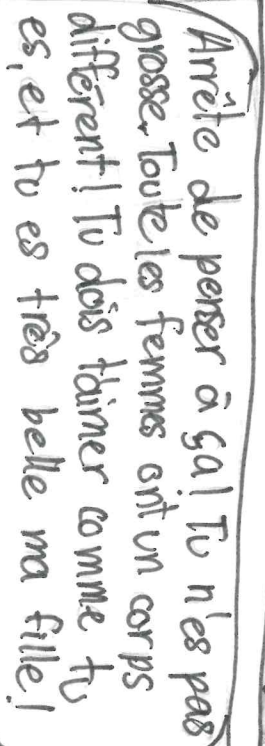 Arrête de penser à ça! Tu n'es pas
grosse. Toute les femmes ont un corps
différent! Tu dois t'aimer comme tu
es, et tu es très belle ma fille!